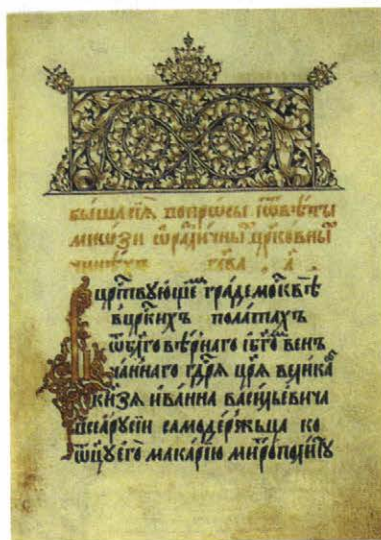 быша сїѧ вопросы ї ѿвѣты
мнѡзи ѡ раꙁличны цр҃ковны
чинѣхъ глава а
В црⷭ҇твующеⷨ граде москвѣ
в црⷭ҇кихъ полатахъ
ѿ бл҃говѣрнаго и бг҃оⷨ вен
чаннаго гдⷭ҇рѧ цр҃ѧ велика
кн҃ѕѧ иванна васильевича
всеѧ русїи самодержьца ко
ѿцу его макарїю митрополиту